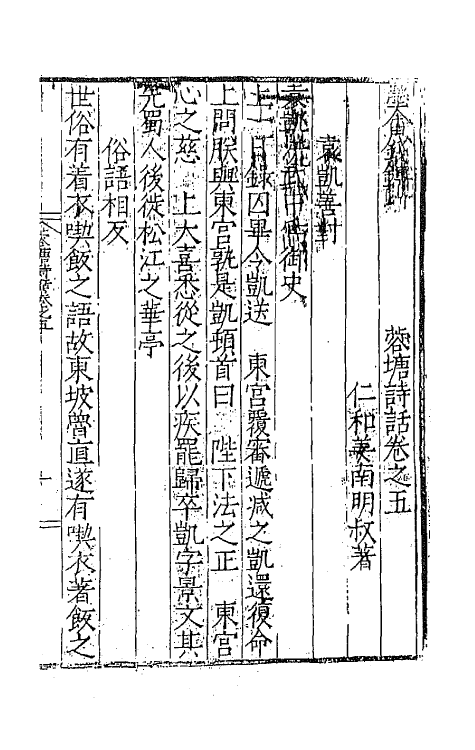 蓉塘詩話卷之五
仁和姜南明叔著
袁凱善對
袁凱洪武中爲御史
上一日録囚畢令凱送　東宮覆審遞减之凱還復命
上問朕與東宮孰是凱頓首曰　陛下法之正　東宮
心之慈　上大喜悉從之後以疾罷歸卒凱字景文其
先蜀人後徙松江之華亭
俗語相反
世俗有着衣喫飯之語故東坡魯直遂有喫衣著飯之
蓉塘詩話卷之五